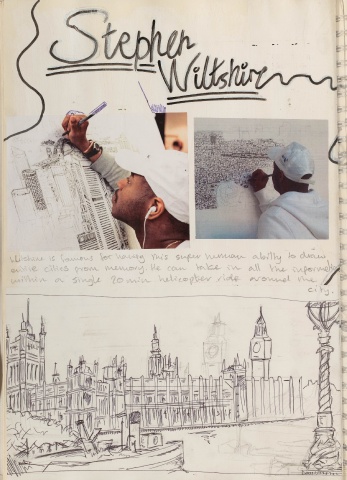 Stephen
Wiltshire
Wiltshire is famous for having this super human ability to draw
entire cities from memory. He can take in all the information
within a single 20 min helicopter ride around the
city.